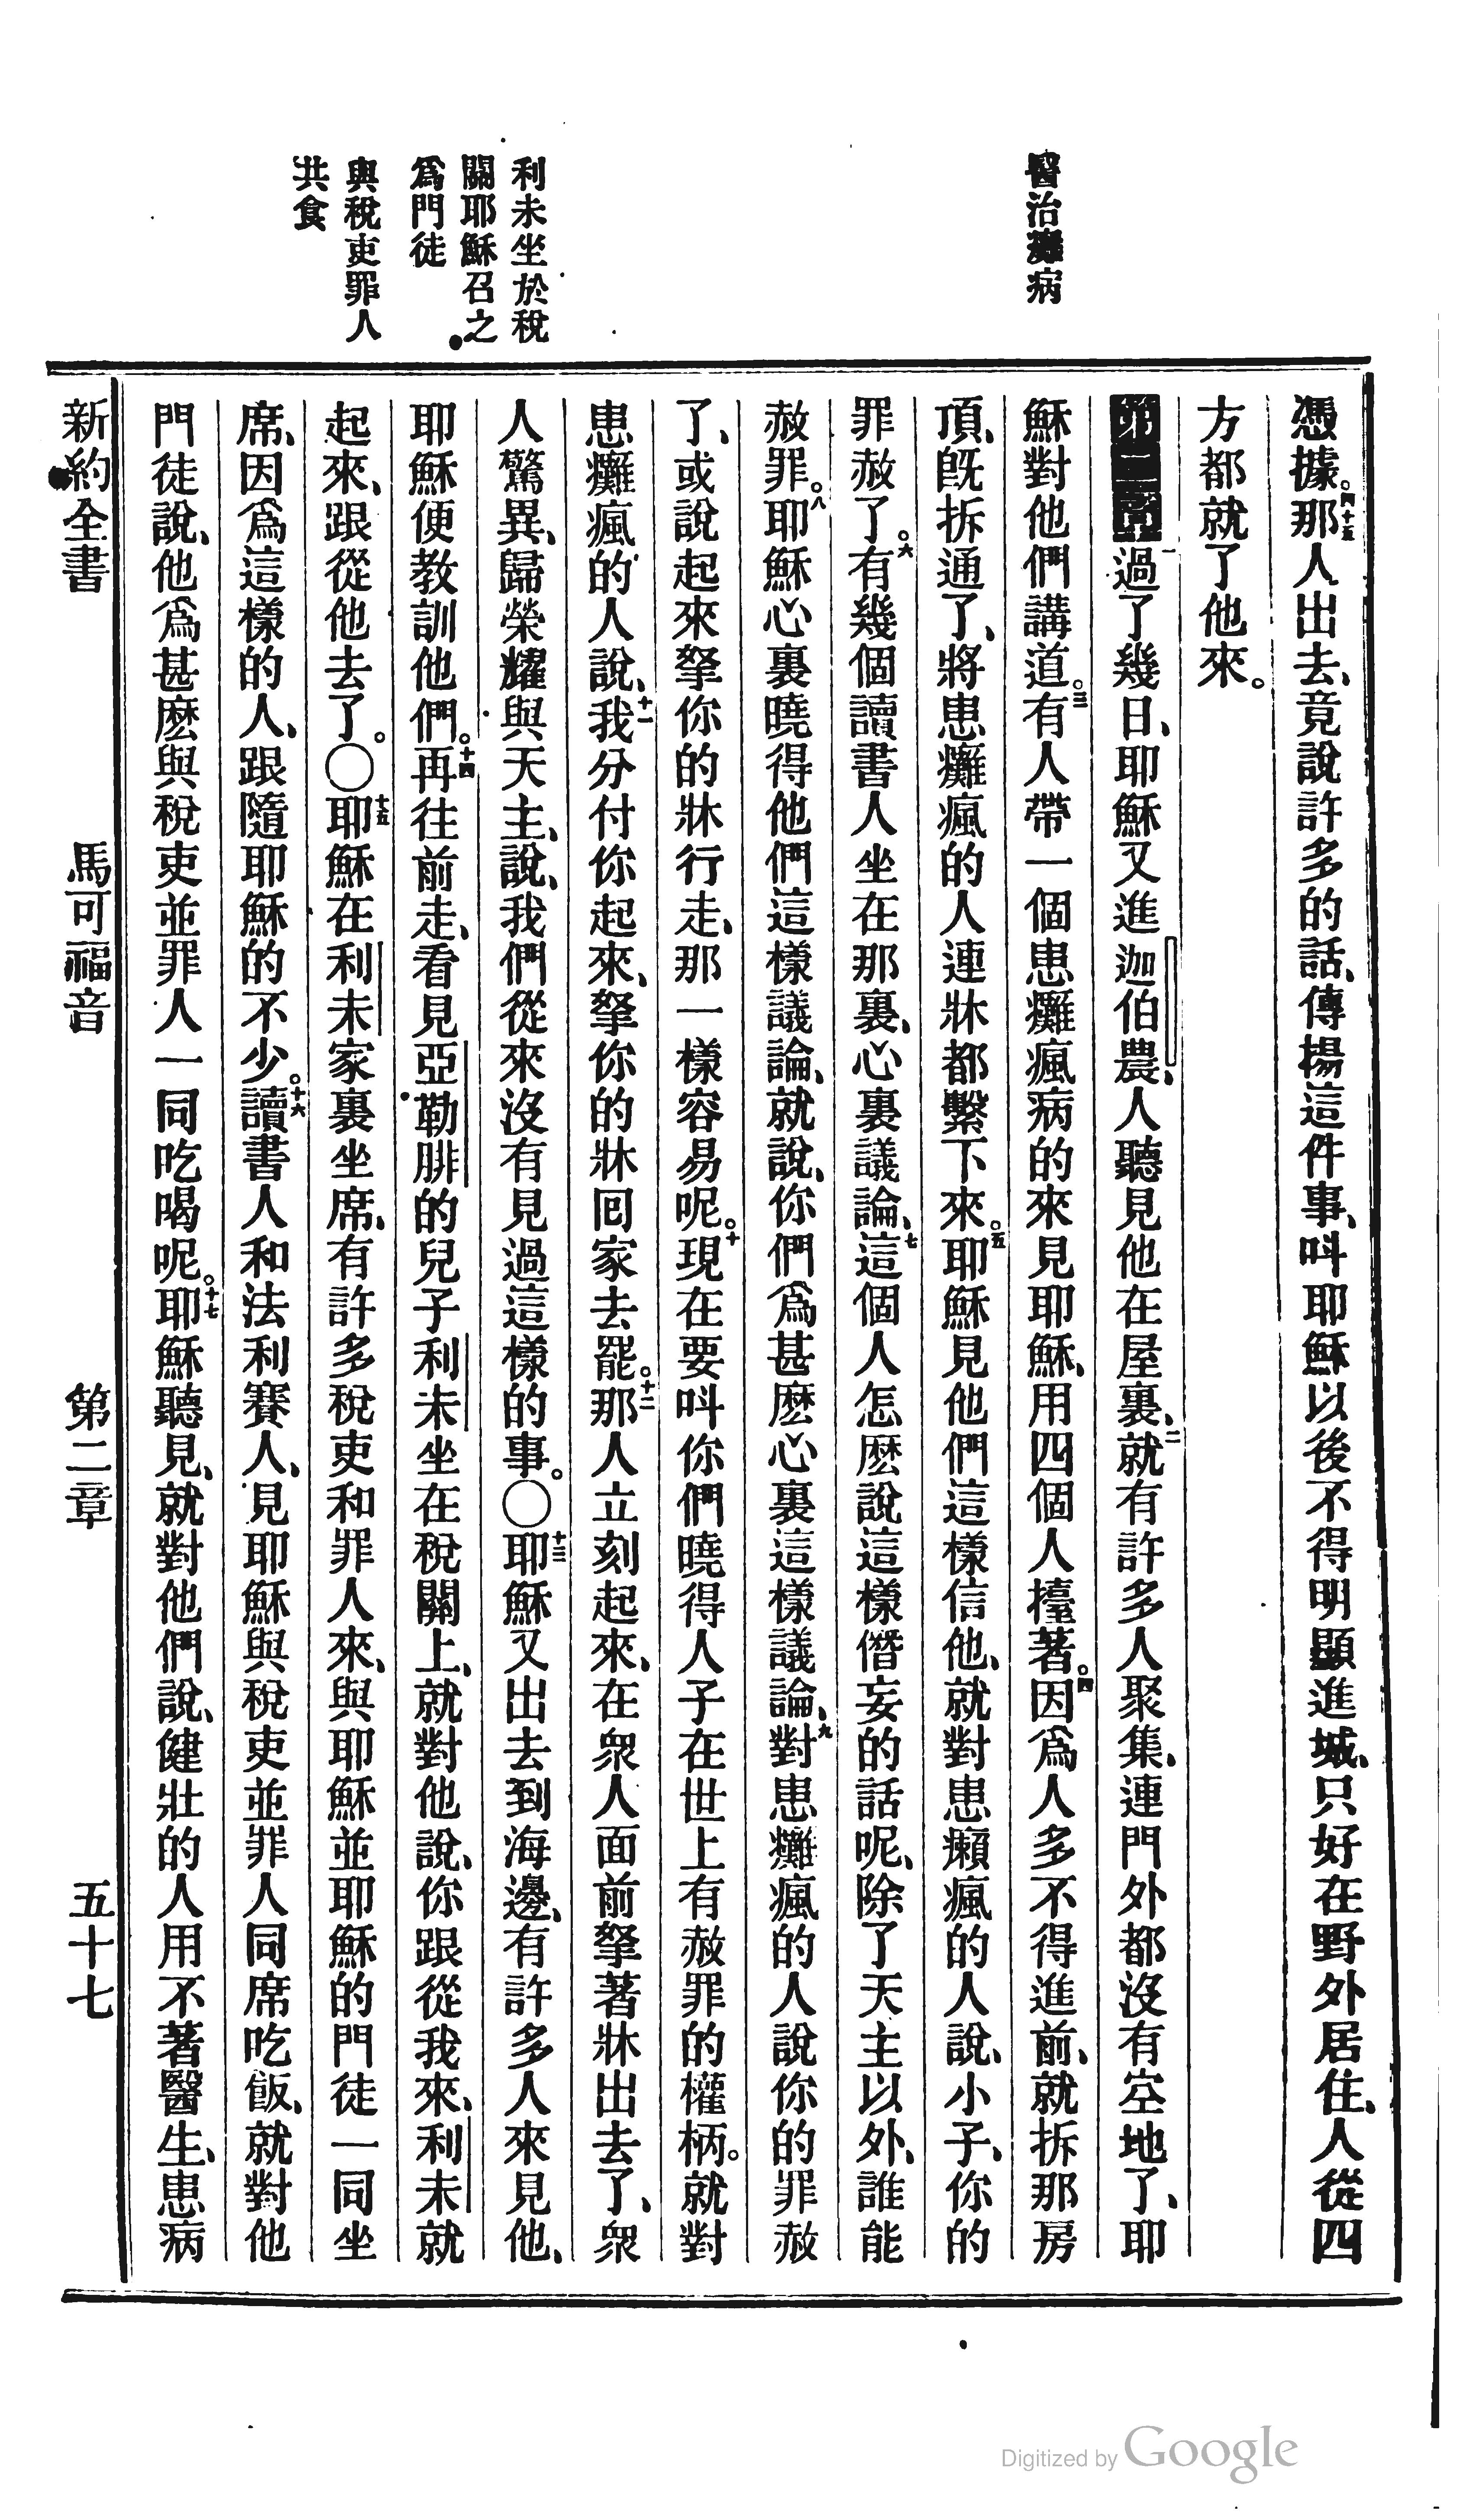 醫治癱病
利未坐於稅
關耶穌召之
爲門徒
與稅吏罪人
共食
憑據。四十五那人出去、竟說許多的話、傳揚這件事、呌耶穌以後不得明顯進城、只好在野外居住、人從四
方都就了他來。
第二章一過了幾日、耶穌又進迦伯農、人聽見他在屋裏、二就有許多人聚集、連門外都沒有空地了、耶
穌對他們講道。三有人帶一個患癱瘋病的來見耶穌、用四個人擡著。四因爲人多不得進前、就拆那房
頂、旣拆通了、將患癱瘋的人連牀都繫下來。五耶穌見他們這樣信他、就對患癩瘋的人說、小子、你的
罪赦了。六有幾個讀書人坐在那裏、心裏議論、七這個人怎麽說這樣僭妄的話呢、除了天主以外、誰能
赦罪。八耶穌心裏曉得他們這樣議論、就說、你們爲甚麽心裏這樣議論、九對患癱瘋的人說你的罪赦
了、或說起來拏你的牀行走、那一樣容易呢。十現在要呌你們曉得人子在世上有赦罪的權柄。就對
患癱瘋的人說、十一我分付你起來、拏你的牀囘家去罷。十二那人立刻起來、在衆人面前拏著牀出去了、衆
人驚異、歸榮耀與天主、說、我們從來沒有見過這樣的事。〇十三耶穌又出去到海邊、有許多人來見他、
耶穌便教訓他們。十四再往前走、看見亞勒腓的兒子利未坐在稅關上、就對他說、你跟從我來、利未就
起來、跟從他去了。〇十五耶穌在利未家裏坐席、有許多稅吏和罪人來、與耶穌並耶穌的門徒一同坐
席、因爲這樣的人、跟隨耶穌的不少。十六讀書人和法利賽人、見耶穌與稅吏並罪人同席吃飯、就對他
門徒說、他爲甚麽與稅吏並罪人一同吃喝呢。十七耶穌聽見、就對他們說、健壯的人用不著醫生、患病
新約全書 馬可福音 第二章 五十七
Digitized by Google